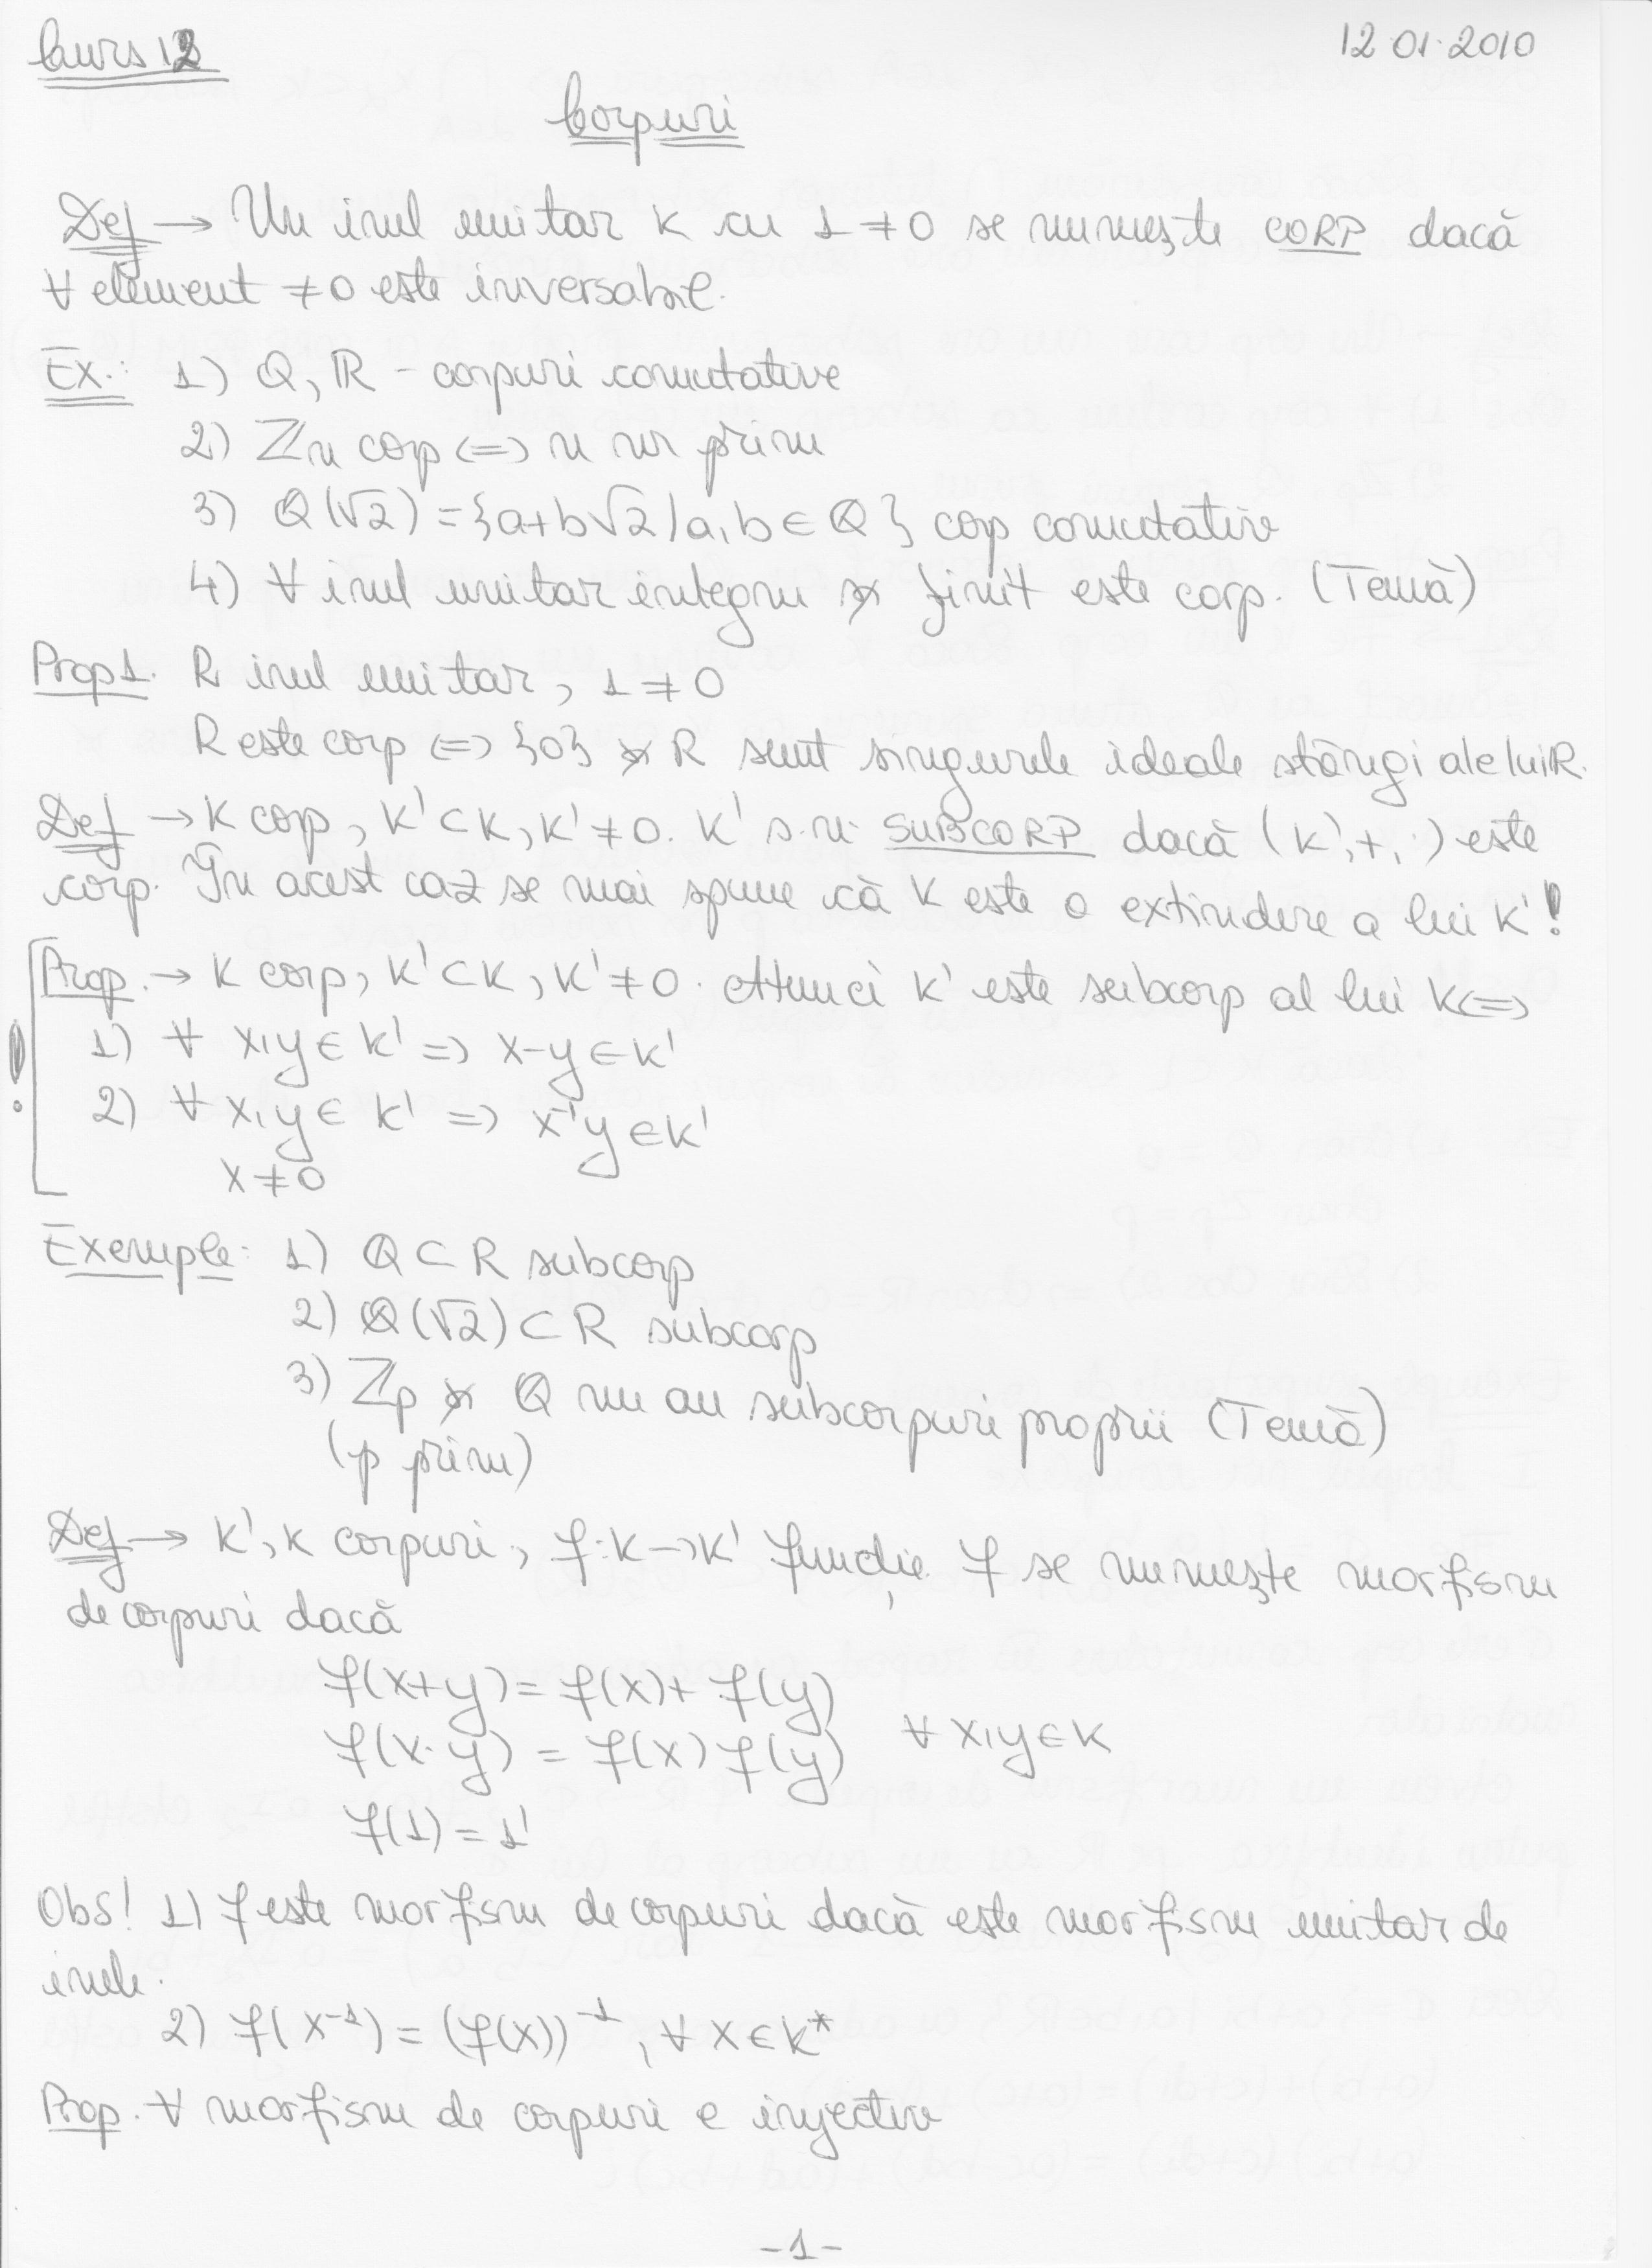 Curs 12
12.01.2010
Corpuri
Def → Un inel unitar K cu 1 ≠ 0 se numește CORP dacă
∀ element ≠ 0 este inversabil.
Ex.: 1) Q, R - corpuri comutative
2) Zn corp <=> n nr prim
3) Q(√2) = {a+b√2 / a, b ∈ Q} corp comutativ
4) ∀ inel unitar integru și finit este corp. (Temă)
Prop1. R inel unitar, 1 ≠ 0
R este corp <=> {0} și R sunt singurele ideale stângi ale lui R.
Def → K corp, K' ⊂ K, K' ≠ 0. K' s.n. SUBCORP dacă (K', +, ·) este
corp. În acest caz se mai spune că K este o extindere a lui K'!
Prop. → K corp, K' ⊂ K, K' ≠ 0. Atunci K' este subcorp al lui K <=>
1) ∀ x, y ∈ K' => x-y ∈ K'
! 2) ∀ x, y ∈ K' => x⁻¹y ∈ K'
x ≠ 0
Exemple: 1) Q ⊂ R subcorp
2) Q(√2) ⊂ R subcorp
3) Zp și Q nu au subcorpuri proprii (Temă)
(p prim)
Def → K', K corpuri, f: K → K' funcție. f se numește morfism
de corpuri dacă
f(x+y) = f(x) + f(y)
f(x·y) = f(x) f(y) ∀ x, y ∈ K
f(1) = 1'
Obs! 1) f este morfism de corpuri dacă este morfism unitar de
inele.
2) f(x⁻¹) = (f(x))⁻¹, ∀ x ∈ K*
Prop. ∀ morfism de corpuri e injectiv
-1-